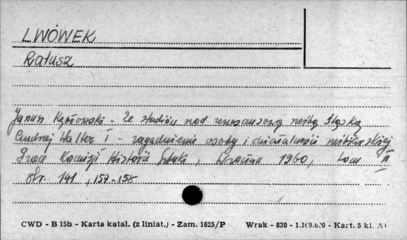 LWÓWEK
Ratusz
Janusz Kębłowski - Ze studiów nad renesansową rzeźbą Śląska
Andrzej Walter I - zagadnienie osoby i działalności
Prace Komisji Historii Sztuki, Wrocław 1960, tom II
str. 141, 157-158
CWD - B 15b - Karta katal. (z liniat.) - Zam. 1625/P Wrak - 830 - Kart. 5 kl.